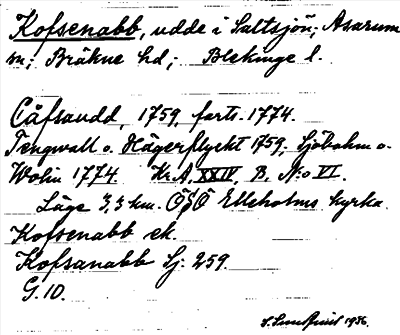 Kofsenabb, udde i Saltsjön; Asarum
sn; Bräkne hd; Blekinge l.
Cåfsaudd, 1759, forts. 1774.
Tengwall o. Hägerflyckt 1759, Sjöbohm o.
Wolin 1774. Kr. A. XXIV B, N:o VI.
Läge 3,3 km. ÖSÖ Elleholms kyrka.
Kofsenabb ek.
Kofsanabb Sj. 259.
G. 10.
1936.